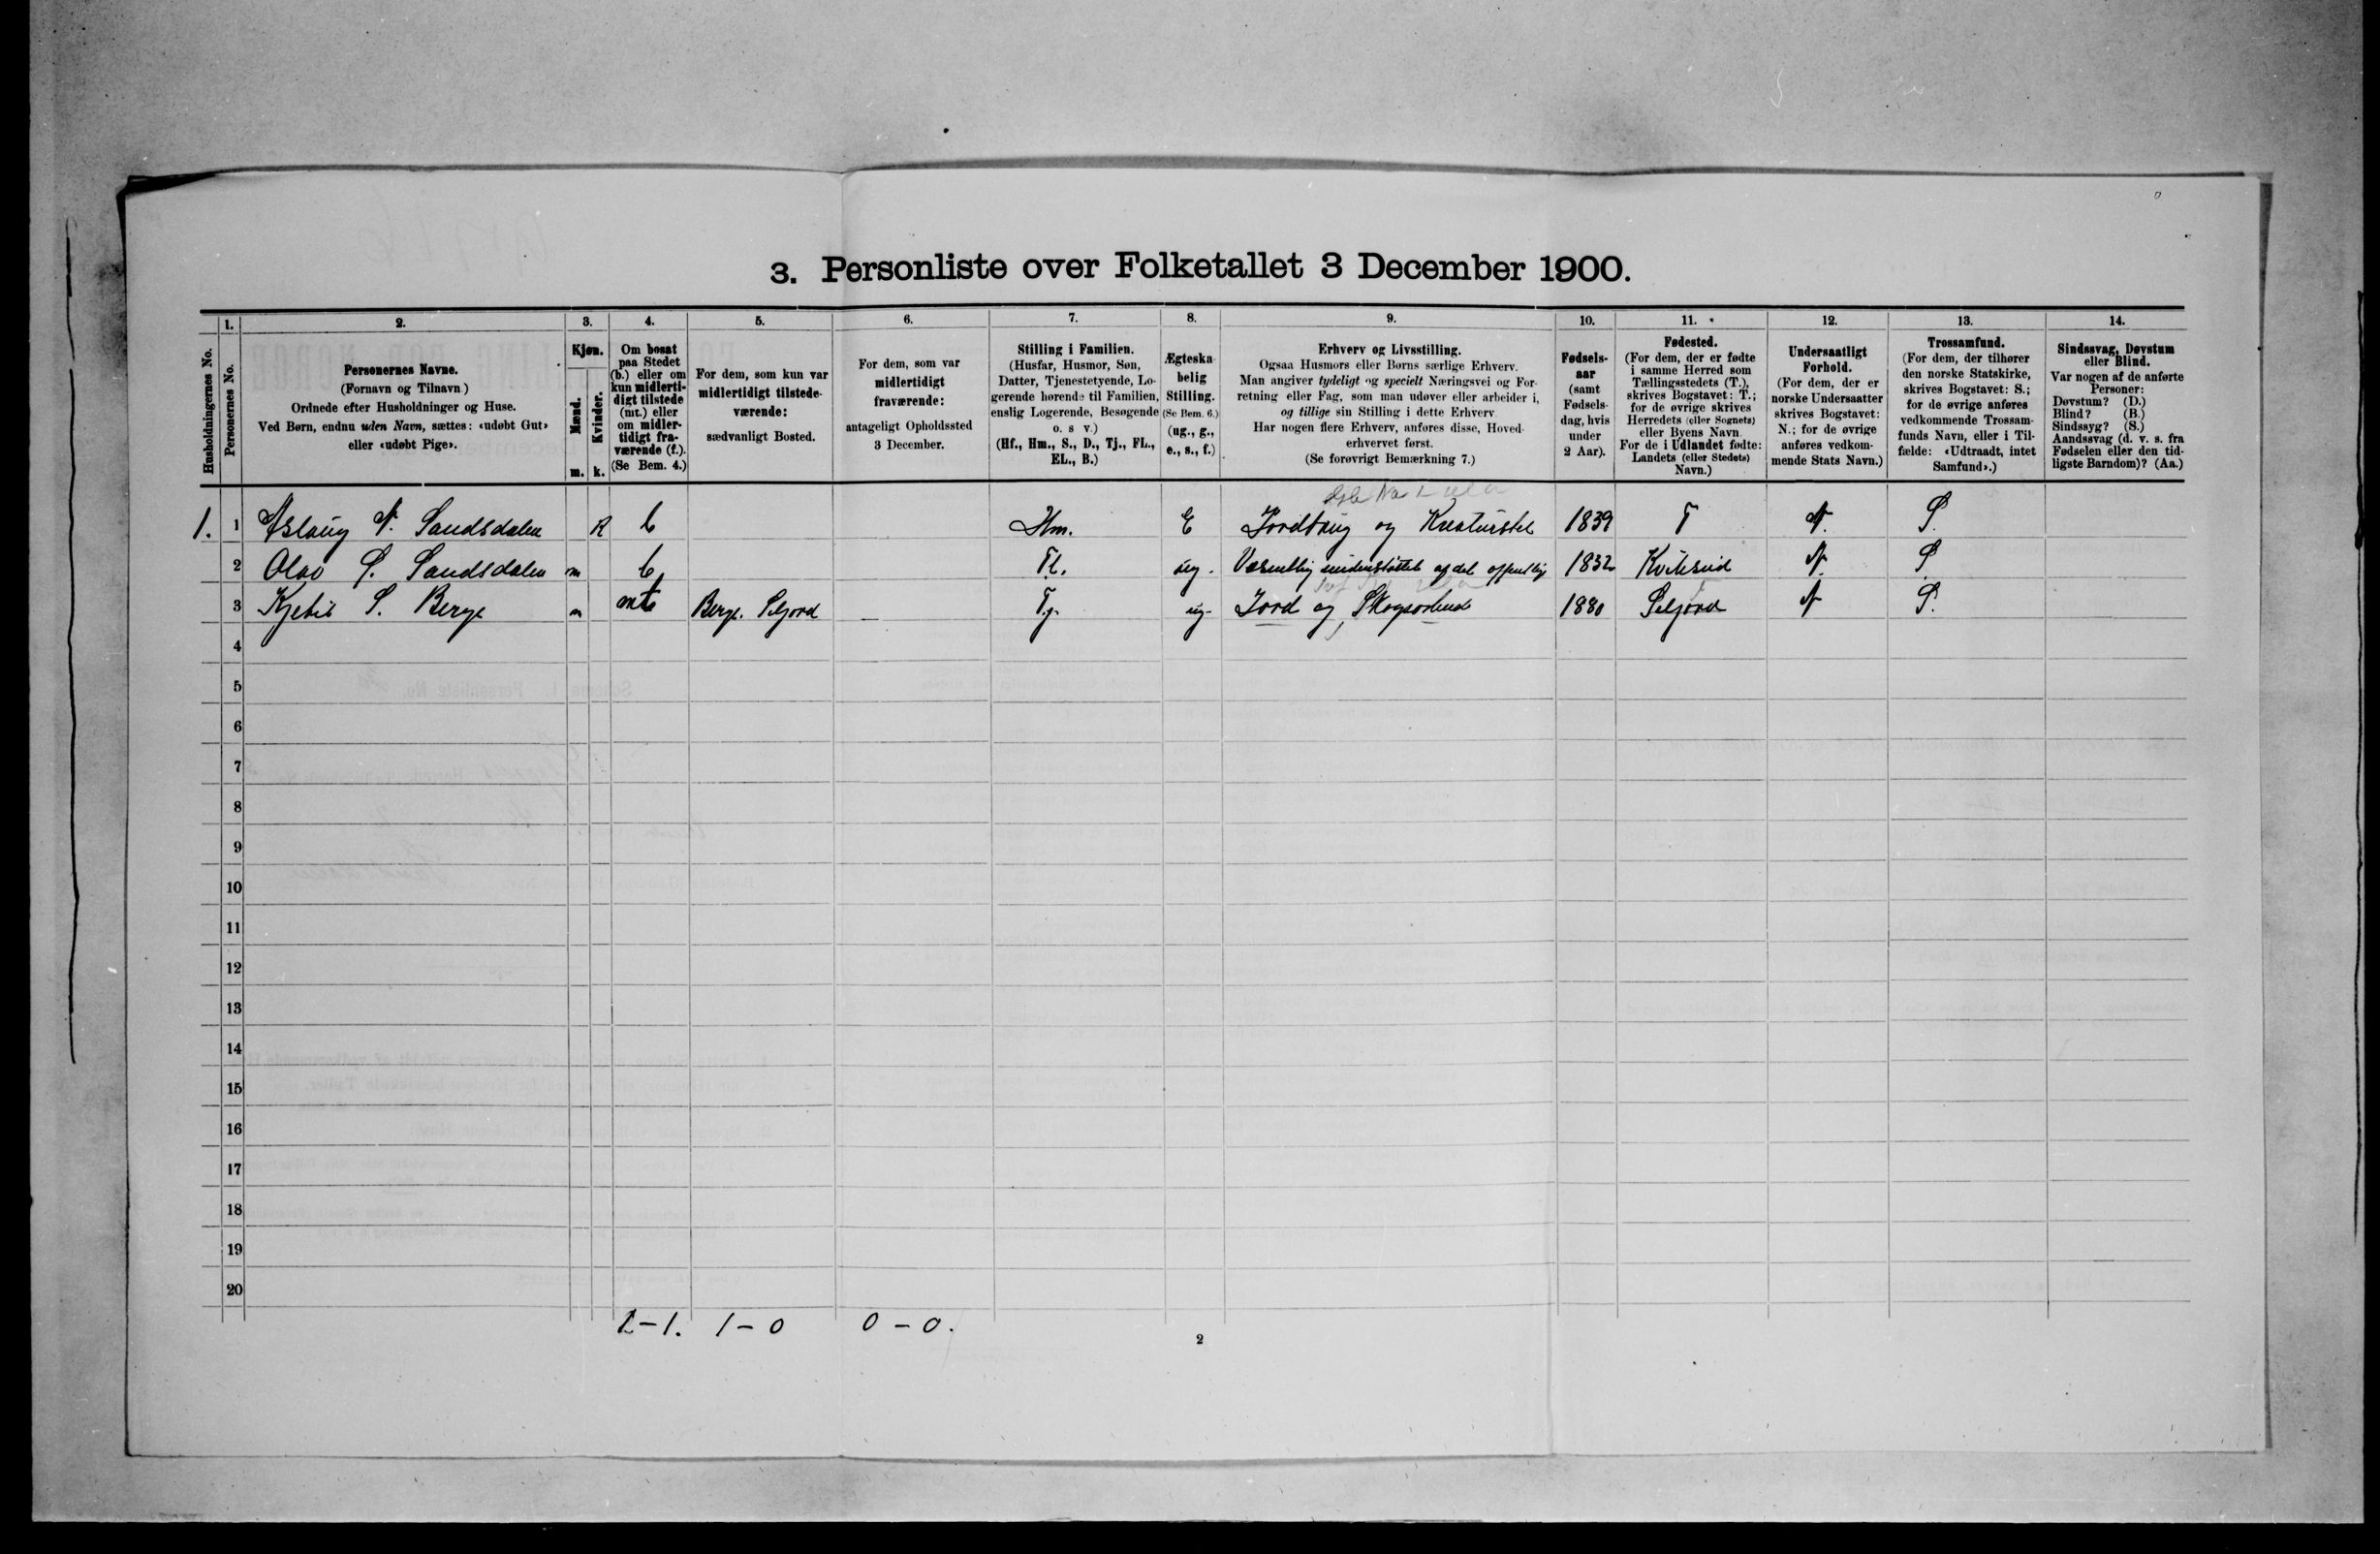 3. Personliste over Folketallet 3 December 1900.
1. 2. 3. 4. 5. 6. 7. 8. 9. 10. 11. 12. 13. 14.
Husholdningernes No.
Personernes No.
Personernes Navne.
(Fornavn og Tilnavn)
Ordnede efter Husholdninger og Huse.
Ved Børn, endnu uden Navn, sættes: «udøbt Gut»
eller «udøbt Pige».
Kjøn.
Mænd.
Kvinder.
m. k.
Om bosat
paa Stedet
(b.) eller om
kun midlerti-
digt tilstede
(mt.) eller
om midler-
tidigt fra-
værende (f.).
(Se Bem. 4.)
For dem, som kun var
midlertidigt tilstede-
værende:
sædvanligt Bosted.
For dem, som var
midlertidigt
fraværende:
antageligt Opholdssted
3 December.
Stilling i Familien.
(Husfar, Husmor, Søn,
Datter, Tjenestetyende, Lo-
gerende hørende til Familien,
enslig Logerende, Besøgende
o. s v.)
(Hf., Hm., S., D., Tj., FL.,
EL., B.)
Ægteska-
belig
Stilling.
(Se Bem. 6.)
(ug., g.,
e., s., f.)
Erhverv og Livsstilling.
Ogsaa Husmors eller Børns særlige Erhverv.
Man angiver tydeligt og specielt Næringsvei og For-
retning eller Fag, som man udøver eller arbeider i,
og tillige sin Stilling i dette Erhverv
Har nogen flere Erhverv, anføres disse, Hoved-
erhvervet først.
(Se forøvrigt Bemærkning 7.)
Fødsels-
aar
(samt
Fødsels-
dag, hvis
under
2 Aar).
Fødested.
(For dem, der er fødte
i samme Herred som
Tællingsstedets (T.),
skrives Bogstavet: T.;
for de øvrige skrives
Herredets (eller Sognets)
eller Byens Navn.
For de i Udlandet fødte:
Landets (eller Stedets)
Navn.)
Undersaatligt
Forhold.
(For dem, der er
norske Undersaatter
skrives Bogstavet:
N.; for de øvrige
anføres vedkom-
mende Stats Navn.)
Trossamfund.
(For dem, der tilhører
den norske Statskirke,
skrives Bogstavet: S.;
for de øvrige anføres
vedkommende Trossam-
funds Navn, eller i Til-
fælde: «Udtraadt, intet
Samfund».)
Sindssvag, Døvstum
eller Blind.
Var nogen af de anførte
Personer:
Døvstum? (D.)
Blind? (B.)
Sindssyg? (S.)
Aandssvag (d. v. s. fra
Fødselen eller den tid-
ligste Barndom)? (Aa.)
1. 1 Aslaug N. Sandsdalen k b Hm. E Jordbrug og Kreaturstel 1839 T N. S.
2 Olav S. Sandsdalen m b Fl. ug. Væsentlig understøttet af det offentlige 1832 Kviteseid N. S.
3 Kjetil S. Berge m mt Berge. Seljord — Tj. ug. Jord og Skogsarbeide 1880 Seljord N S.
4
5
6
7
8
9
10
11
12
13
14
15
16
17
18
19
20
1-1. 1-0 0-0.
2